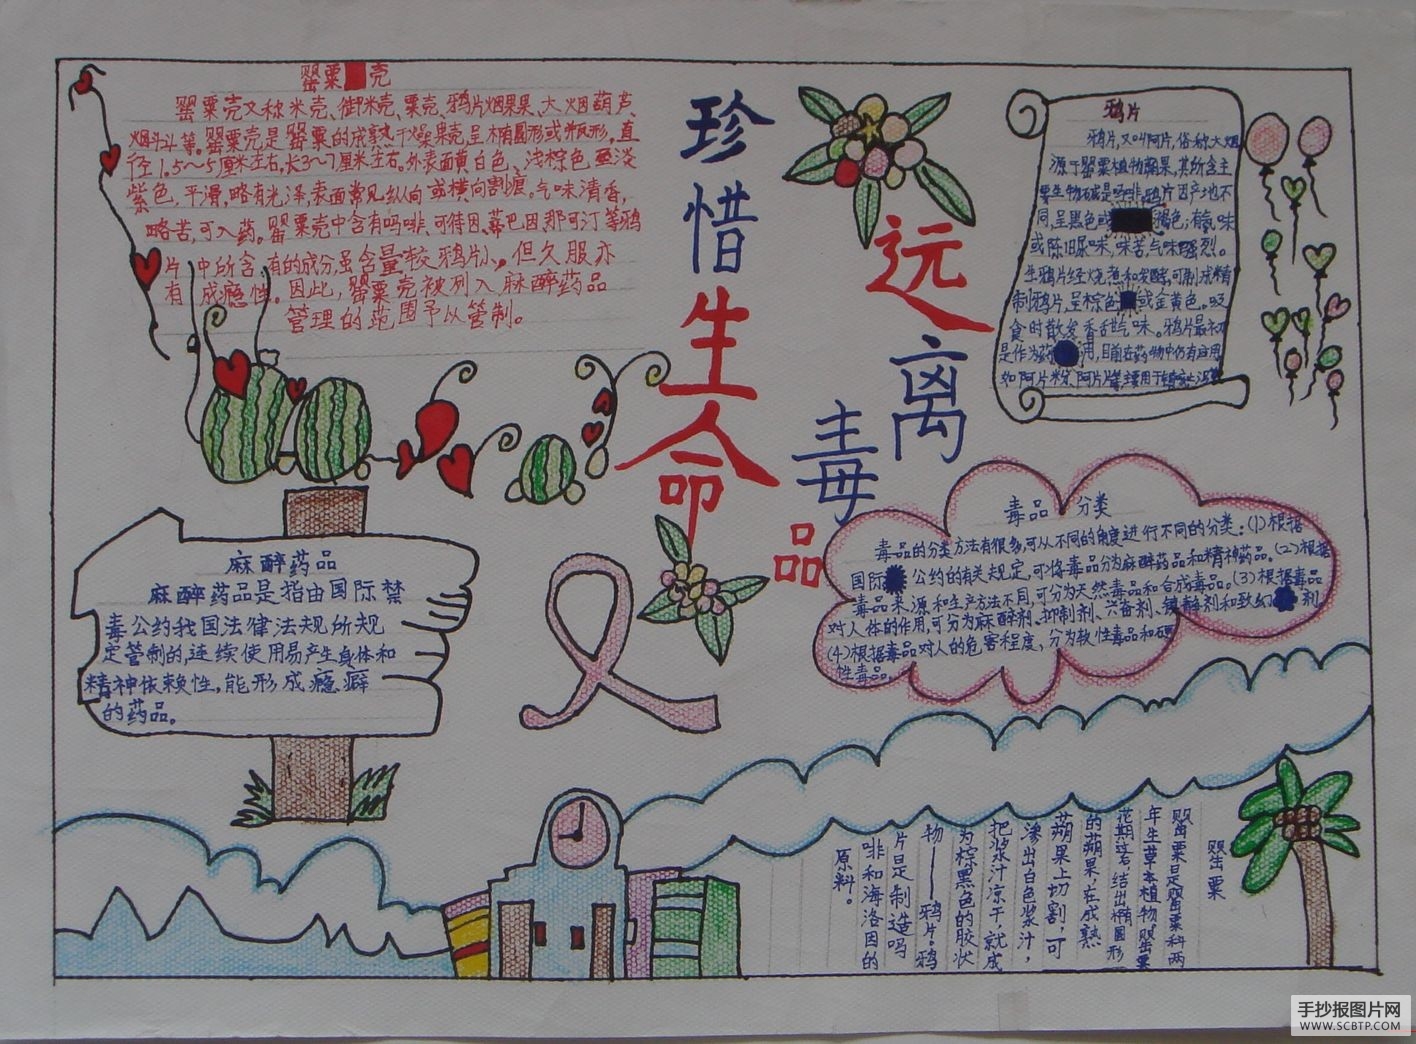 罂粟壳
罂粟壳又称米壳、御米壳、粟壳、鸦片烟果果、大烟葫芦、
烟斗等。罂粟壳是罂粟的成熟干燥果壳呈椭圆形或瓶形,直
径1.5～5厘米左右,长3～7厘米左右。外表面黄白色、浅棕色、至淡
紫色,平滑,略有光泽,表面常见纵向或横向割痕。气味清香,
略苦,可入药。罂粟壳中含有吗啡、可待因、蒂巴因、那可汀等鸦
片中所含有的成分,虽含量较鸦片小,但久服亦
有成瘾性。因此,罂粟壳被列入麻醉药品
管理的范围予以管制。
珍惜生命
远离毒品
鸦片
鸦片,又叫阿片,俗称大烟
源于罂粟植物蒴果,其所含主
要生物碱是吗啡。鸦片因产地不
同,呈黑色或褐色;有氨味
或陈旧尿味,味苦,气味强烈。
生鸦片经烧煮和发酵,可制成精
制鸦片,呈棕色或金黄色。吸
食时散发香甜气味。鸦片最初
是作为药用,目前在药物中仍有应用
如阿片粉、阿片片等,主要用于
麻醉药品
麻醉药品是指由国际禁
毒公约我国法律法规所规
定管制的,连续使用易产生身体和
精神依赖性,能形成瘾癖
的药品。
毒品分类
毒品的分类方法有很多,可从不同的角度进行不同的分类:(1)根据
国际公约的有关规定,可将毒品分为麻醉药品和精神药品。(2)根据
毒品来源和生产方法不同,可分为天然毒品和合成毒品。(3)根据毒品
对人体的作用,可分为麻醉剂、抑制剂、兴奋剂、镇静剂和致幻剂
(4)根据毒品对人的危害程度,分为软性毒品和硬
性毒品。
罂粟
罂粟是罂粟科两
年生草本植物罂粟
花期过后,结出椭圆形
的蒴果,在成熟
蒴果上切割,可
渗出白色浆汁,
把浆汁凉干,就成
为棕黑色的胶状
物——鸦片。鸦
片是制造吗
啡和海洛因的
原料。
手抄报图片网
WWW.SCBTP.COM